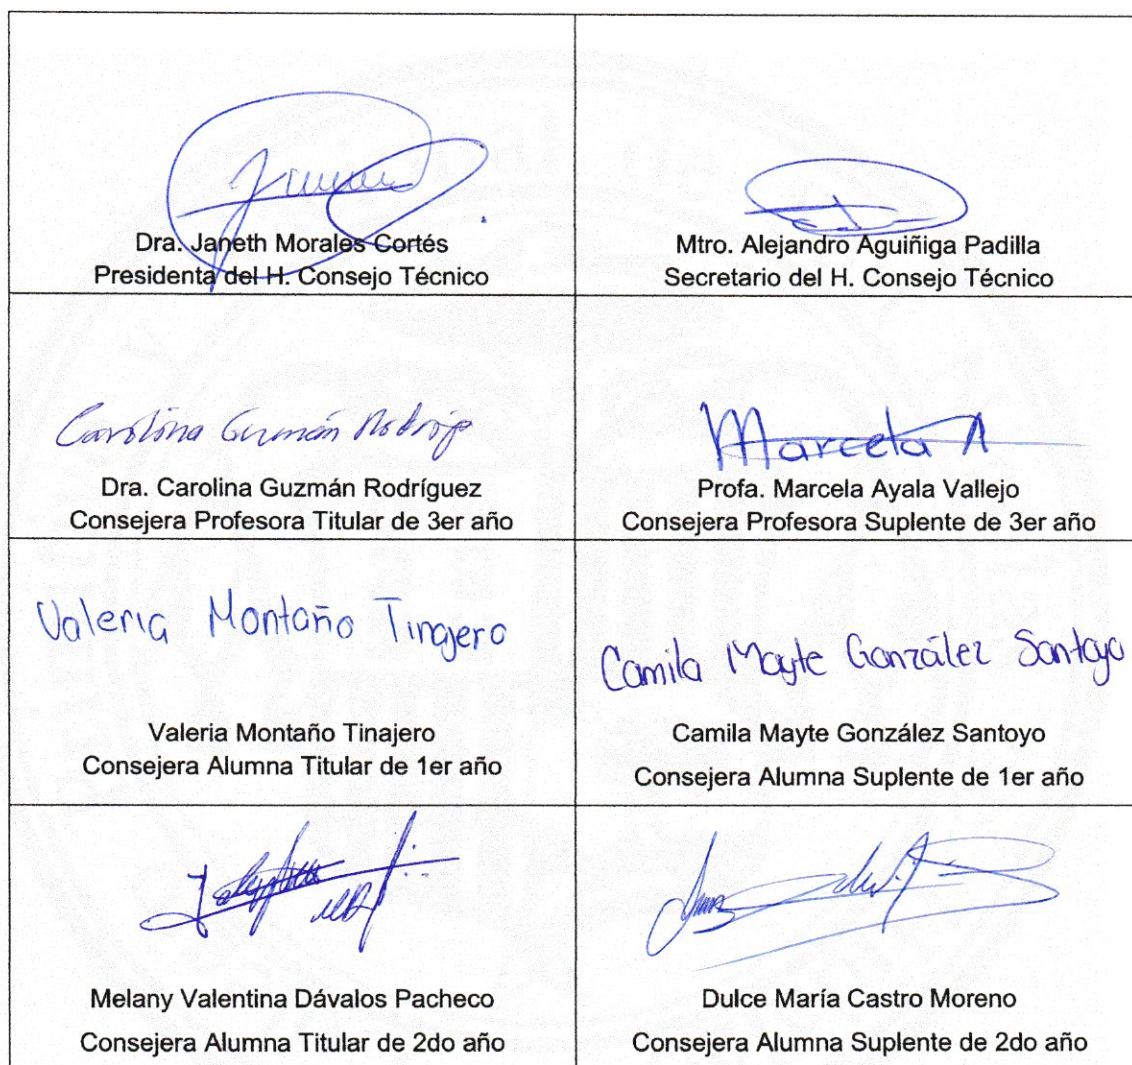 Dra. Janeth Morales Cortés
Presidenta del H. Consejo Técnico
Mtro. Alejandro Aguiñiga Padilla
Secretario del H. Consejo Técnico
Carolina Guzmán
Dra. Carolina Guzmán Rodríguez
Consejera Profesora Titular de 3er año
Marcela A
Profa. Marcela Ayala Vallejo
Consejera Profesora Suplente de 3er año
Valeria Montaño Tinajero
Valeria Montaño Tinajero
Consejera Alumna Titular de 1er año
Camila Mayte González Santoyo
Camila Mayte González Santoyo
Consejera Alumna Suplente de 1er año
Melany Valentina Dávalos Pacheco
Consejera Alumna Titular de 2do año
Dulce María Castro Moreno
Consejera Alumna Suplente de 2do año